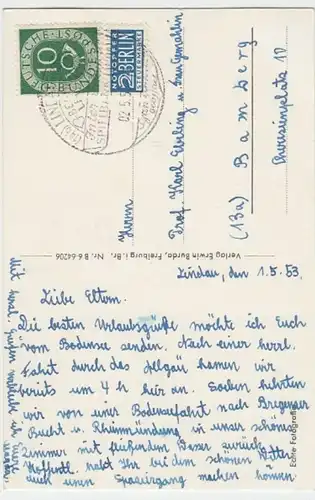 DEUTSCHE BUNDESPOST
10
NOTOPFER
2 BERLIN
STEUERMARKE
Herrn
Prof. Karl Ehrling u. Frau Gemahlin
(13a) Bamberg
Theresienplatz 10
Verlag Erwin Burda, Freiburg i. Br. Nr. B 6-64206
Echte Fotografie
Lindau, den 1.5.53.
Liebe Eltern.
Die besten Urlaubsgrüße möchte ich Euch
vom Bodensee senden. Nach einer herrl.
Fahrt durch das Allgäu kamen wir
bereits um 4 h hier an. Soeben kehrten
wir von einer Bodenseefahrt nach Bregenzer
Bucht u. Rheinmündung in unser schönes
Zimmer mit fließendem Wasser zurück.
Hoffentl. habt Ihr bei dem schönen Wetter
auch einen Spaziergang machen können.
Mit herzl. Grüßen